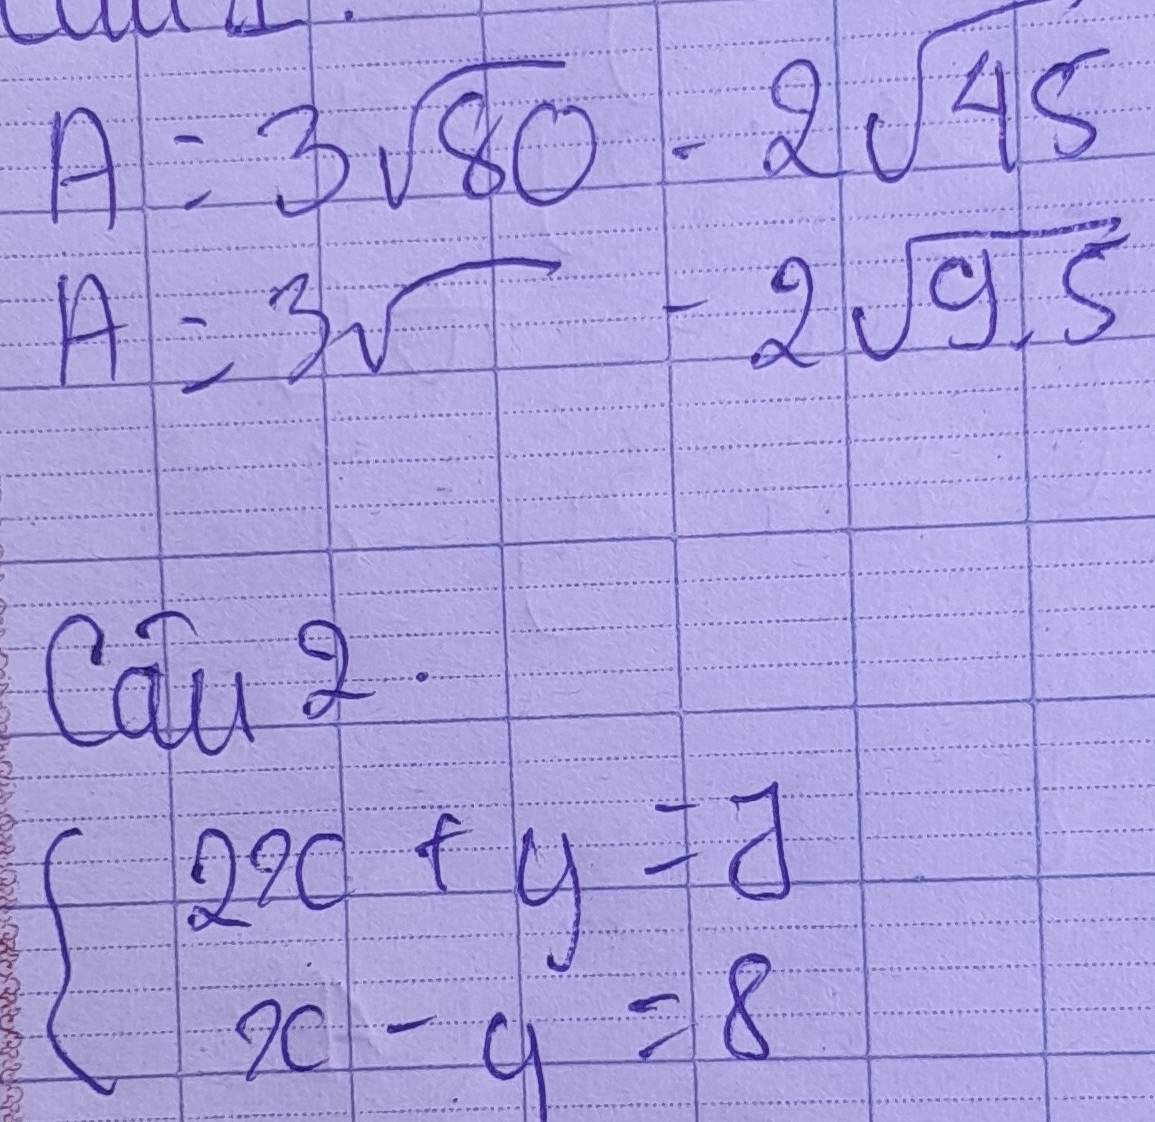 Câu 1.
A = 3√80 - 2√45
A = 3√ - 2√9.5
Câu 2.
{ 2x + y =
x - y = 8